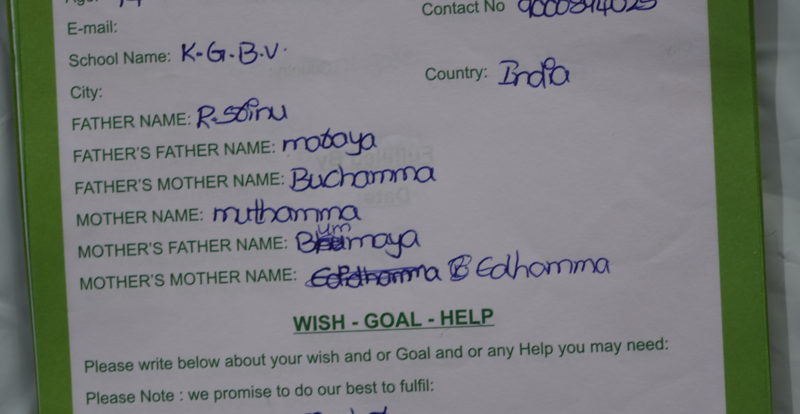 Contact No
E-mail:
School Name: K-G-B.V.
Country: India
City:
FATHER NAME: R. Srinu
FATHER'S FATHER NAME: motaya
FATHER'S MOTHER NAME: Buchamma
MOTHER NAME: muthamma
MOTHER'S FATHER NAME: Bumaya
MOTHER'S MOTHER NAME: Edhamma
WISH - GOAL - HELP
Please write below about your wish and or Goal and or any Help you may need:
Please Note : we promise to do our best to fulfil: